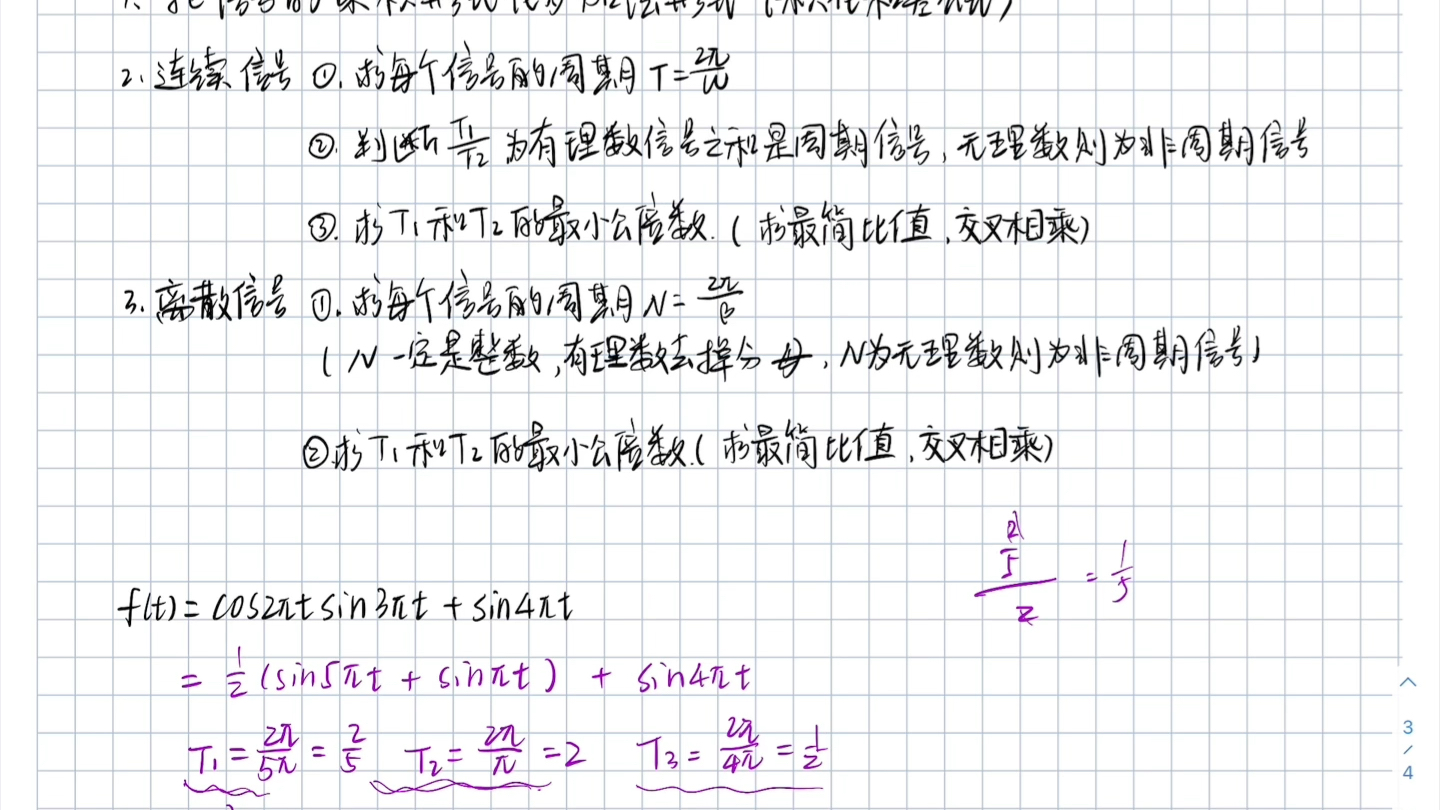 2. 连续信号 ①. 求每个信号的周期 T=2π/ω
②. 判断 T₁/T₂ 为有理数信号之和是周期信号, 无理数则为非周期信号
③. 求 T₁ 和 T₂ 的最小公倍数. (求最简比值, 交叉相乘)
3. 离散信号 ①. 求每个信号的周期 N=2π/β
(N 一定是整数, 有理数去掉分母, N为无理数则为非周期信号)
②. 求 T₁ 和 T₂ 的最小公倍数. (求最简比值, 交叉相乘)
(2/5)/2 = 1/5
f(t) = cos2πt sin3πt + sin4πt
= 1/2 (sin5πt + sinπt) + sin4πt
T₁ = 2π/5π = 2/5 T₂ = 2π/π = 2 T₃ = 2π/4π = 1/2
3
/
4